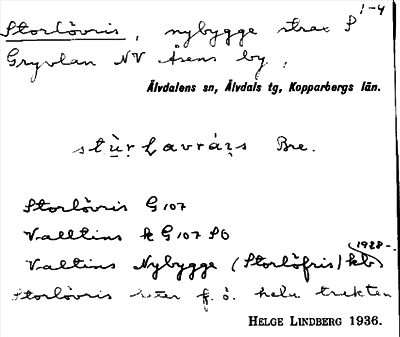 1-4
Storlövris, nybygge strax S
Gryvlan NV Åsens by.
Älvdalens sn, Älvdals tg, Kopparbergs län.
Bre.
Storlövris G 107
Valltins k G 107 SO
1928-
Valtins Nybygge (Storlöfris) kb
Storlövris heter f. ö. hela trakten
HELGE LINDBERG 1936.